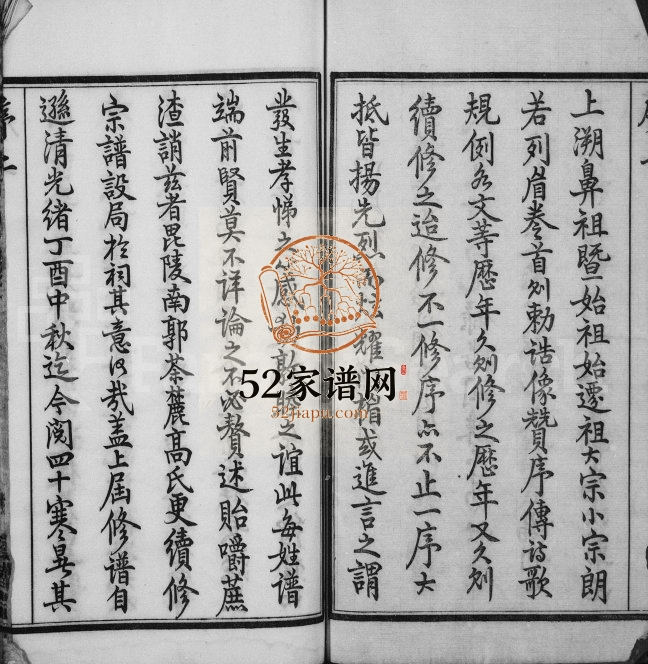 上溯鼻祖暨始祖始遷祖大宗小宗朗
若列眉卷首如勅誥像贊序傳詩歌
規例各文等歷年久則修之歷年又久則
續修之迨修不一修序亦不止一序大
抵皆揚先烈而 耀 楷或進言之謂
發生孝悌之 感 敦 之誼此每姓譜
端前賢莫不詳論之不必贅述貽嚼蔗
渣誚兹者毘陵南郭茶麓高氏更續修
宗譜設局於祠其意何哉盖上屆修譜自
遜清光緒丁酉中秋迄今閱四十寒暑其
52家谱网
52jiapu.com